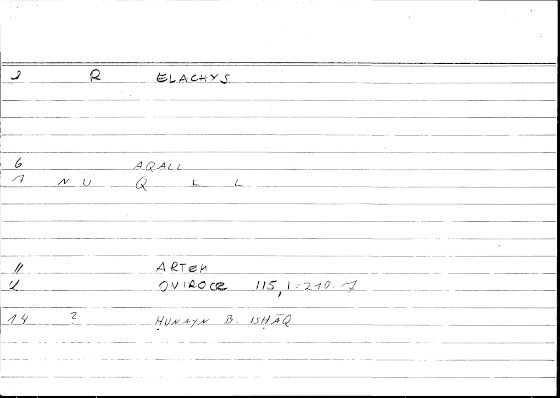 2 R ELACHYS
6 AQALL
7 N U Q L L
11 ARTEM
12 OVIROCR 115,1=210.7
14 ? ḤUNAYN B. ISḤĀQ